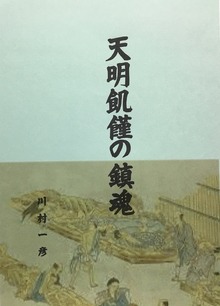 天明飢饉の鎮魂
川村一彦